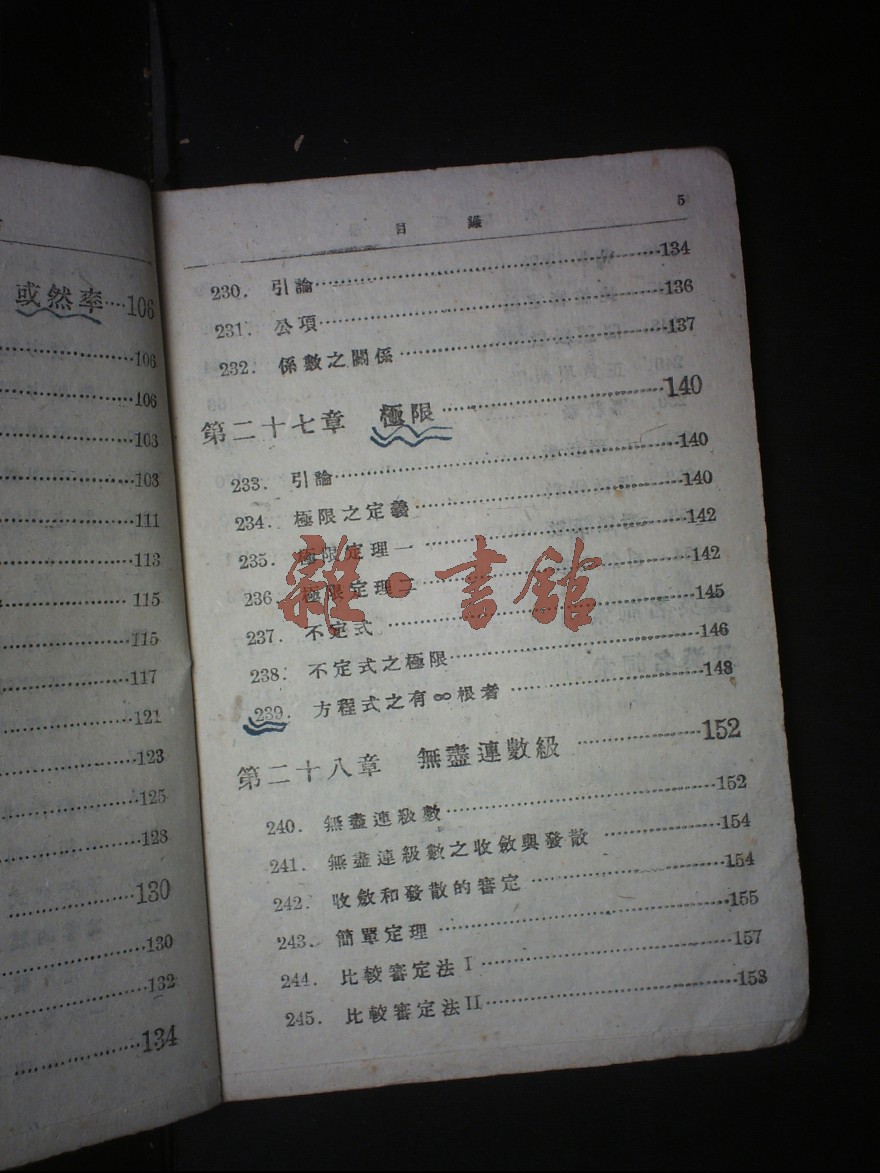 或然率…106
106
106
103
108
111
113
115
115
117
121
123
125
128
130
130
132
134
目錄 5
230. 引論…134
231. 公項…136
232. 係數之關係…137
第二十七章 極限…140
233. 引論…140
234. 極限之定義…140
235. 極限定理一…142
236. 極限定理二…142
237. 不定式…145
238. 不定式之極限…146
239. 方程式之有∞根者…148
第二十八章 無盡連數級…152
240. 無盡連級數…152
241. 無盡連級數之收斂與發散…154
242. 收斂和發散的審定…154
243. 簡單定理…155
244. 比較審定法I…157
245. 比較審定法II…158
雜·書館